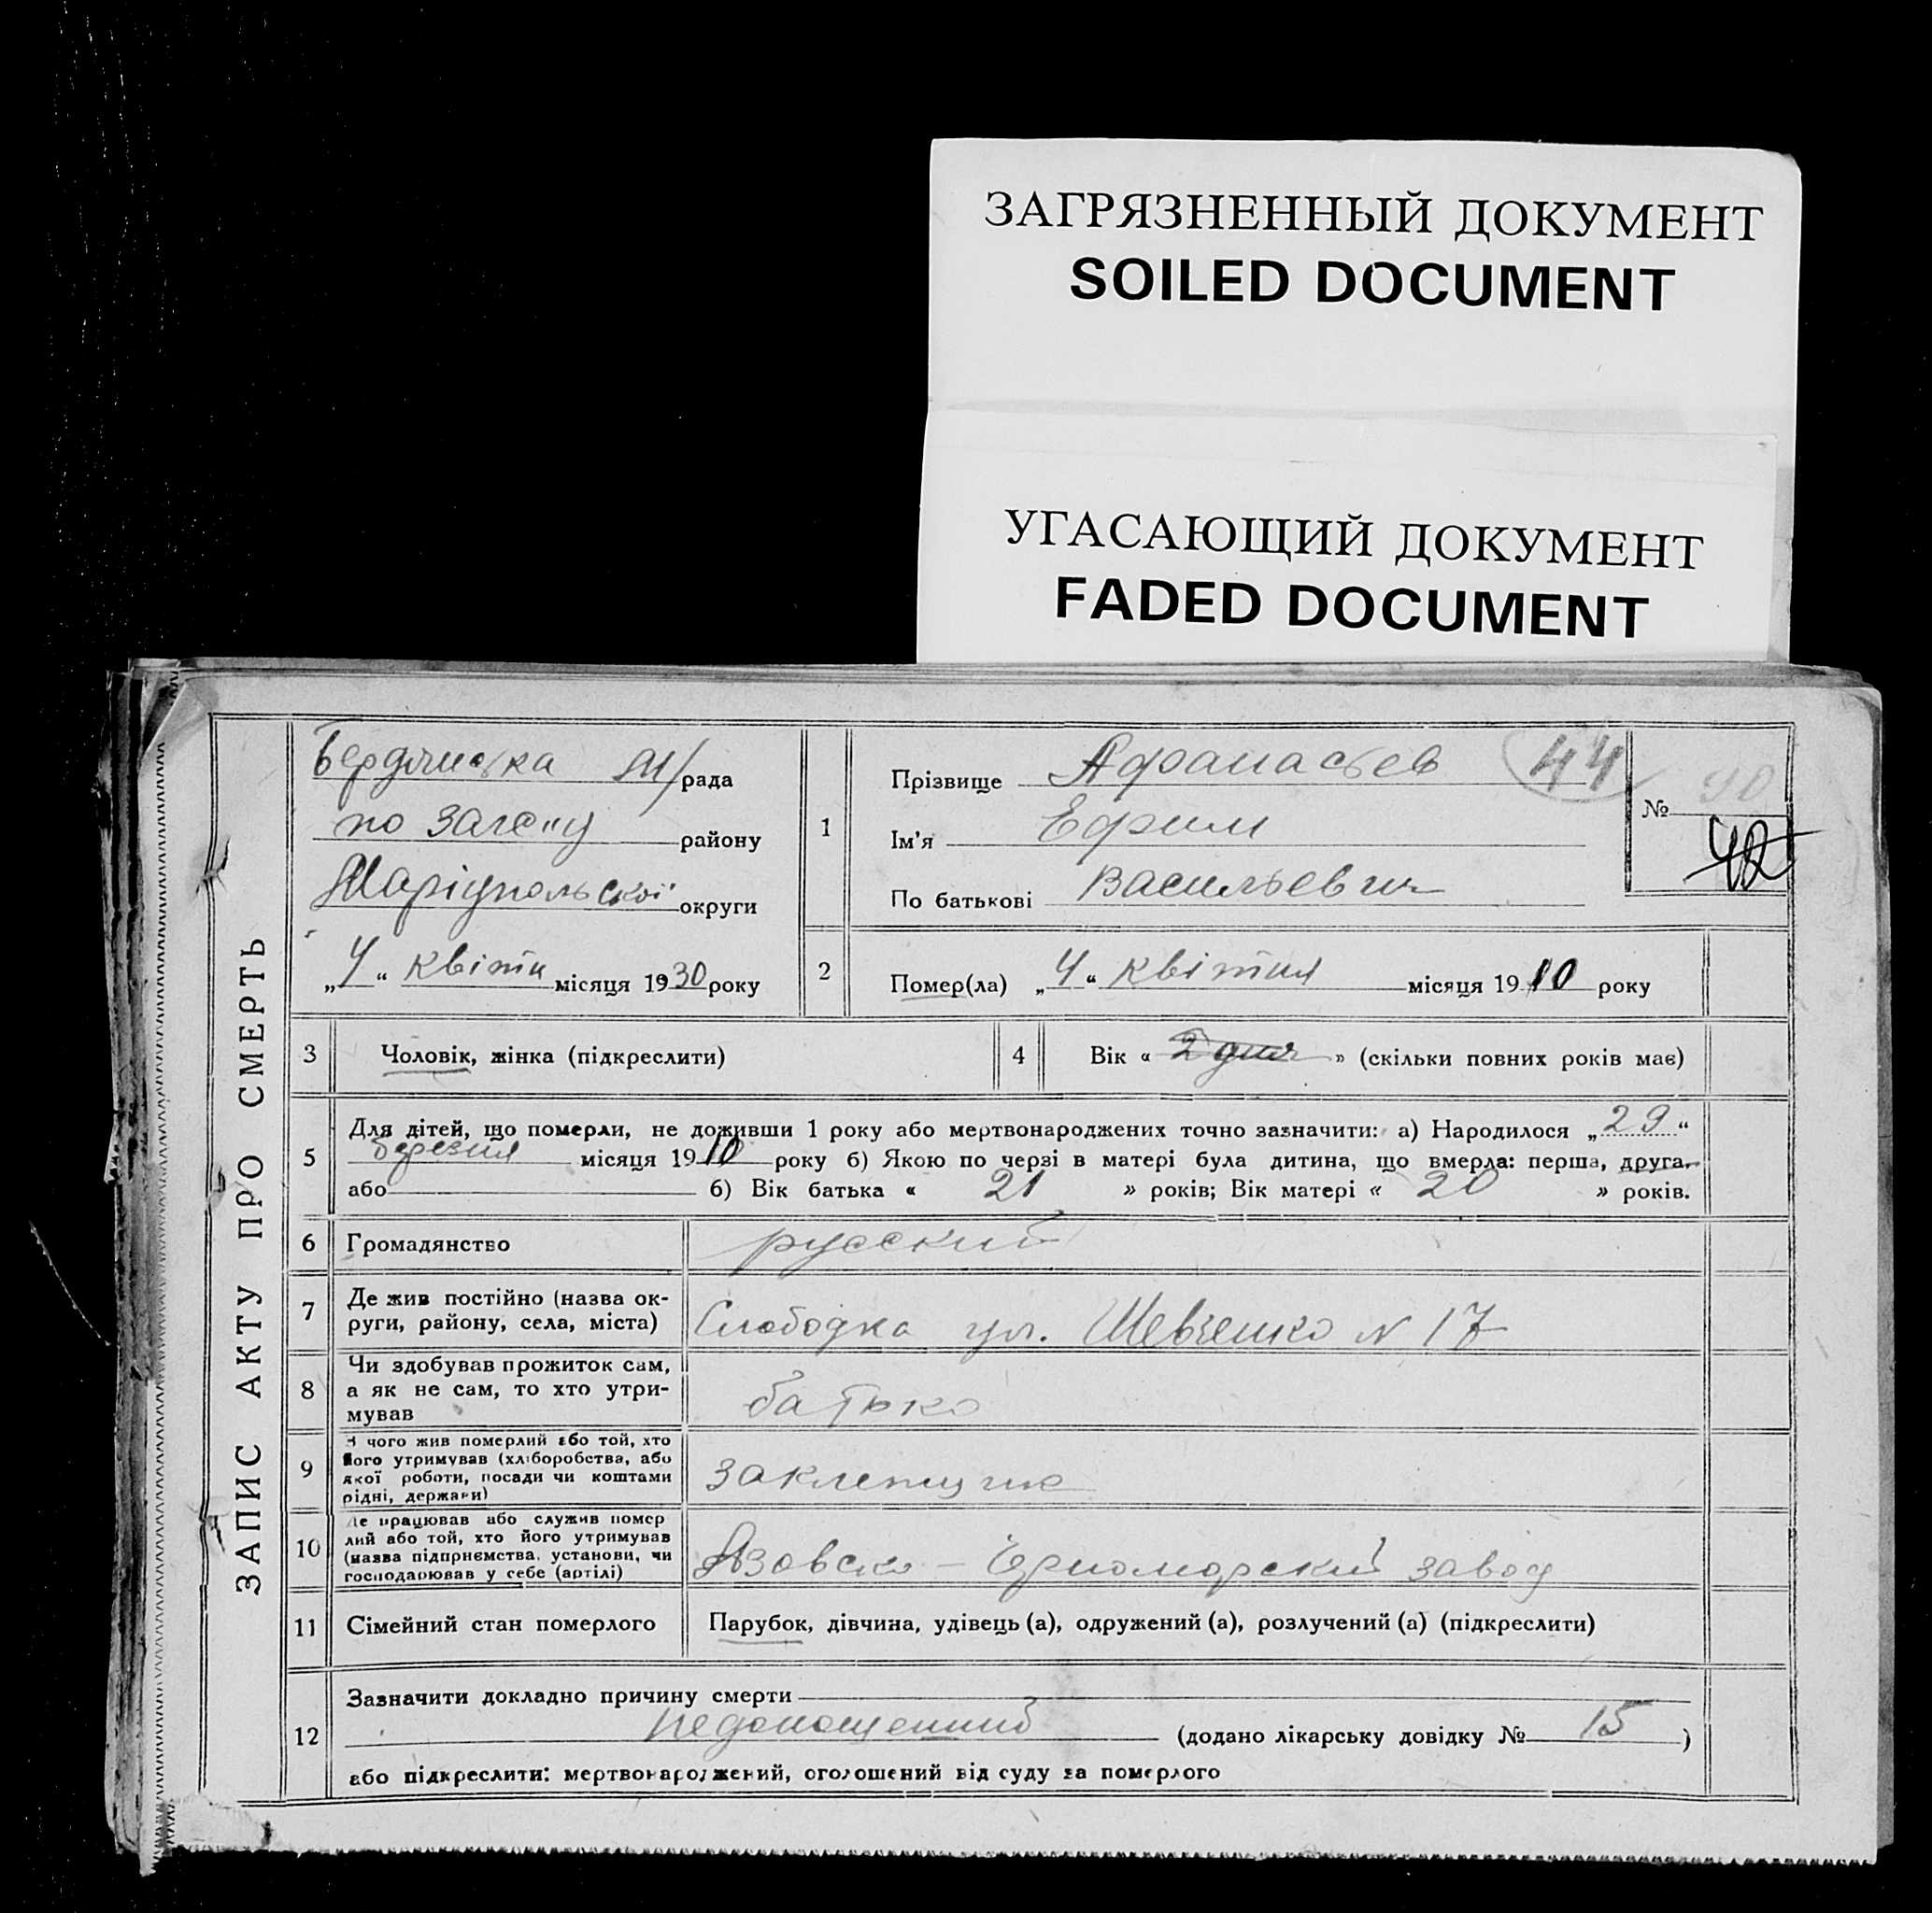 ЗАГРЯЗНЕННЫЙ ДОКУМЕНТ
SOILED DOCUMENT
УГАСАЮЩИЙ ДОКУМЕНТ
FADED DOCUMENT
ЗАПИС АКТУ ПРО СМЕРТЬ
Бердянська М/рада
по загсу району
Маріупольскої округи
„4“ квітн місяця 1930 року
1
Прізвище Афанасьев 44
Ім'я Ефим
По батькові Васильевич
№ 90
42
2
Помер(ла) „4“ квітня місяця 19 року
3 Чоловік, жінка (підкреслити)
4 Вік « 2 дня » (скільки повних років має)
5 Для дітей, що померли, не доживши 1 року або мертвонароджених точно зазначити: а) Народилося „29“
березня місяця 19 року б) Якою по черзі в матері була дитина, що вмерла: перша, друга,
або б) Вік батька « 21 » років; Вік матері « 20 » років.
6 Громадянство русский
7 Де жив постійно (назва ок-
руги, району, села, міста) Слободка ул. Шевченко N 17
8 Чи здобував прожиток сам,
а як не сам, то хто утри-
мував батько
9 З чого жив померлий або той, хто
його утримував (хліборобства, або
якої роботи, посади чи коштами
рідні, держави) заклепщик
10 Де працював або служив помер
лий або той, хто його утримував
(назва підприємства, установи, чи
господарював у себе (артілі) Азовско-Черноморский завод
11 Сімейний стан померлого Парубок, дівчина, удівець (а), одружений (а), розлучений (а) (підкреслити)
12 Зазначити докладно причину смерти
недоношенный (додано лікарську довідку № 15)
або підкреслити: мертвонароджений, оголошений від суду за померлого